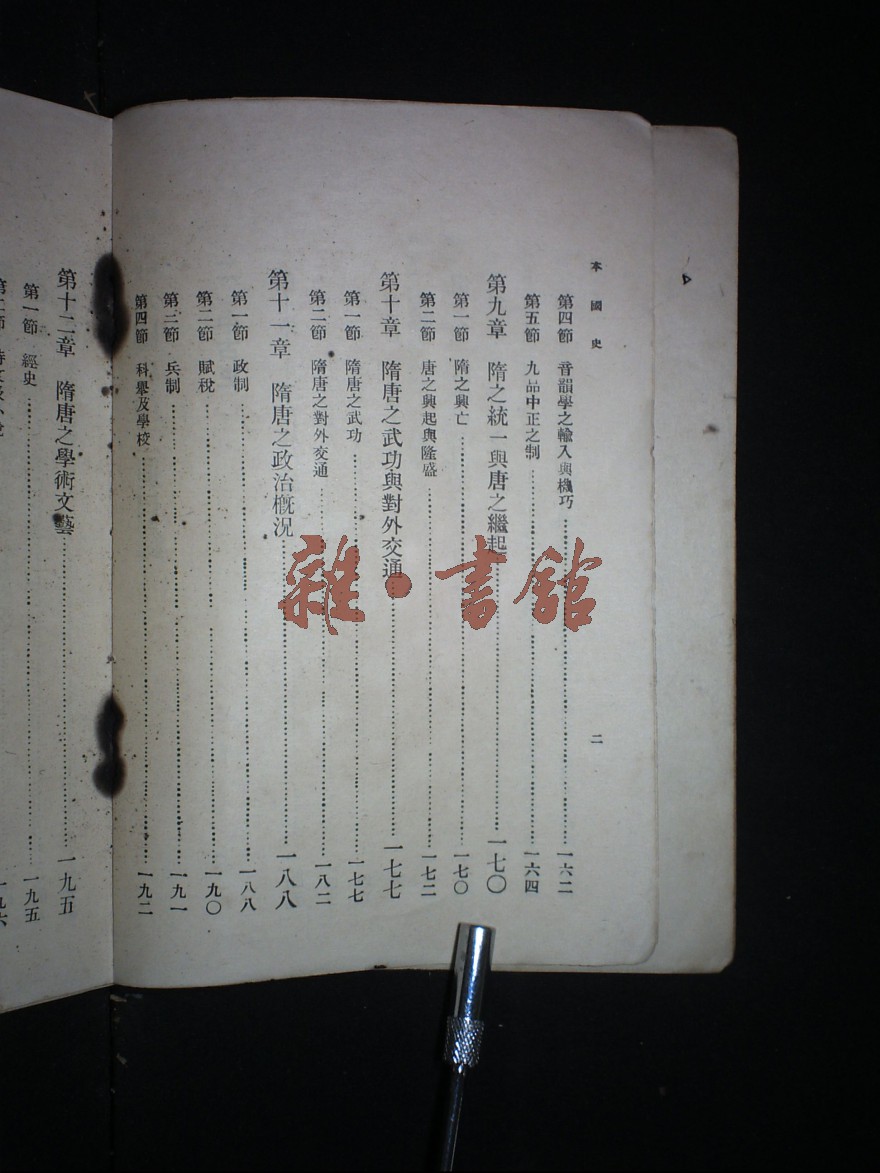 本國史
二
第四節 音韻學之輸入與機巧 一六二
第五節 九品中正之制 一六四
第九章 隋之統一與唐之繼起 一七〇
第一節 隋之興亡 一七〇
第二節 唐之興起與隆盛 一七二
第十章 隋唐之武功與對外交通 一七七
第一節 隋唐之武功 一七七
第二節 隋唐之對外交通 一八二
第十一章 隋唐之政治概況 一八八
第一節 政制 一八八
第二節 賦稅 一九〇
第三節 兵制 一九一
第四節 科舉及學校 一九二
第十二章 隋唐之學術文藝 一九五
第一節 經史 一九五
雜·書館